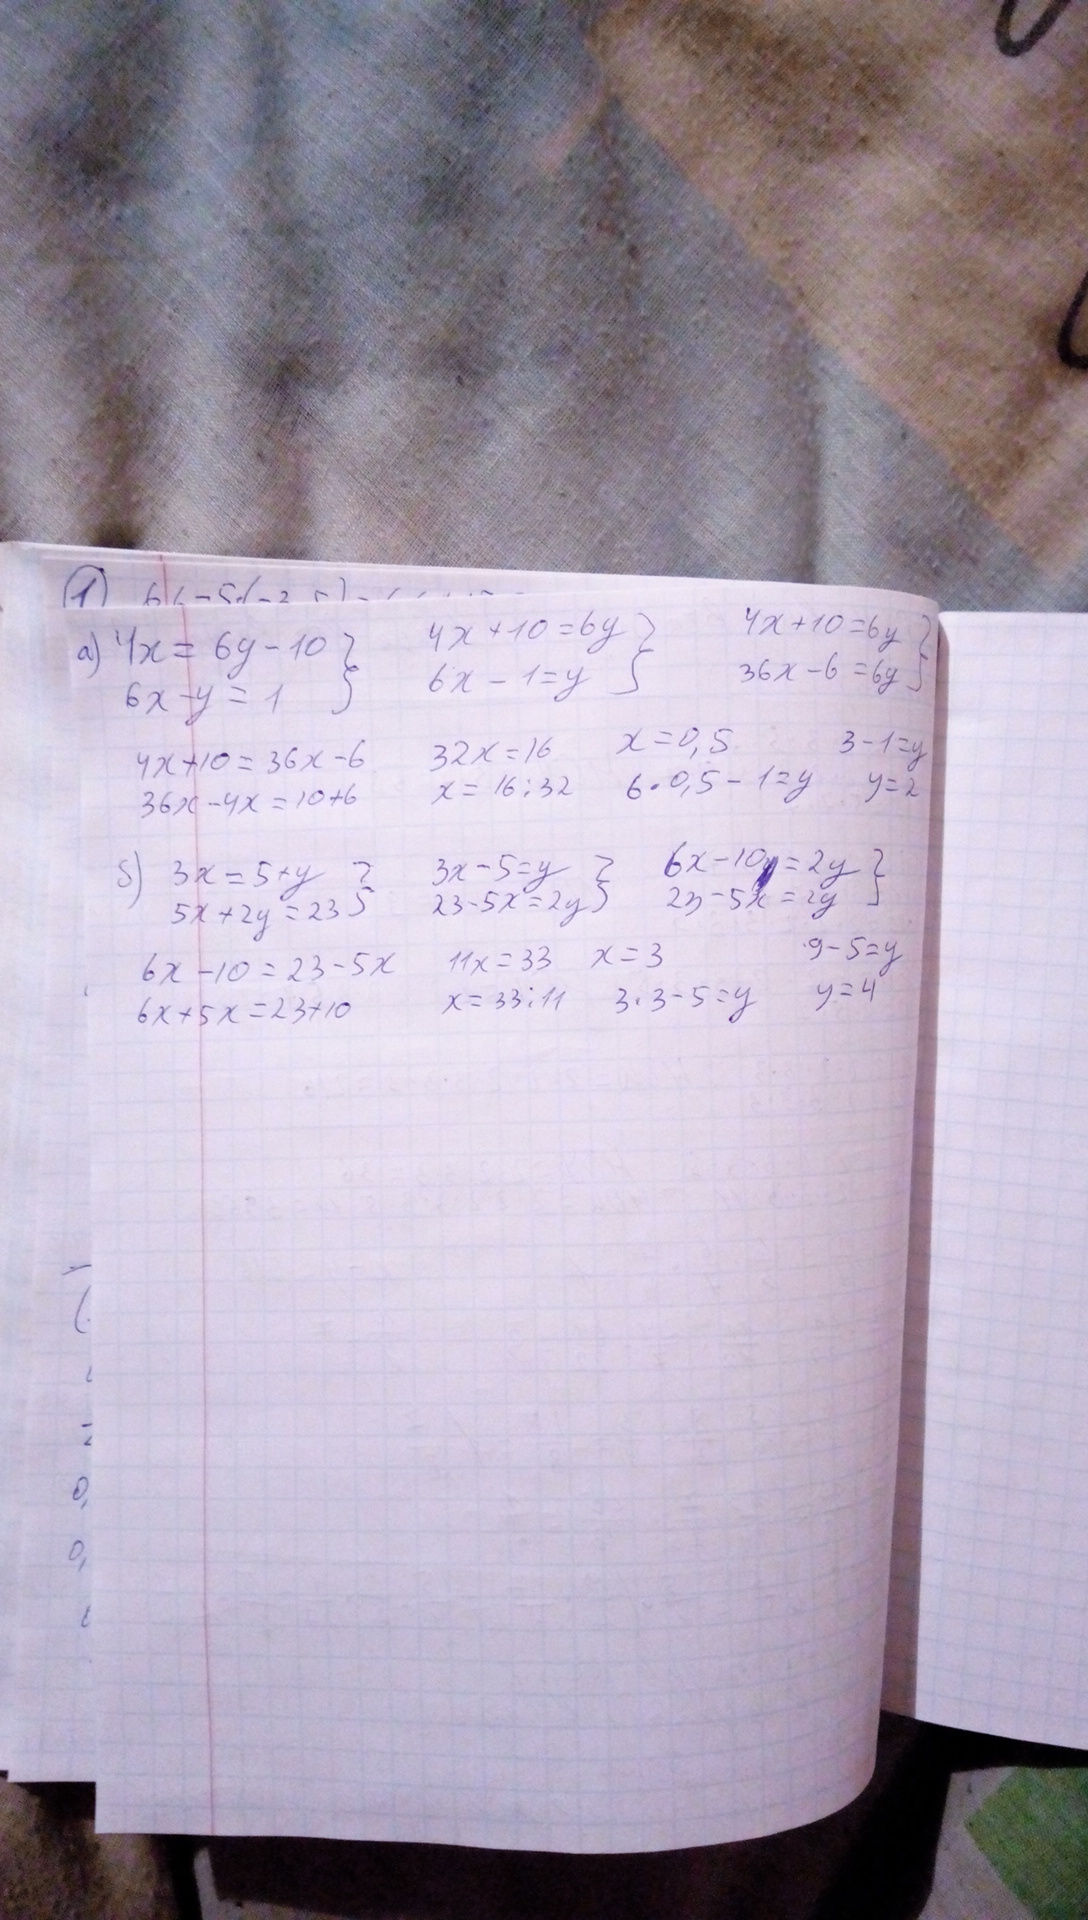 1
а) 4x = 6y - 10 } 4x + 10 = 6y } 4x + 10 = 6y }
6x - y = 1 6x - 1 = y 36x - 6 = 6y
4x + 10 = 36x - 6 32x = 16 x = 0,5 3 - 1 = y
36x - 4x = 10 + 6 x = 16 : 32 6 · 0,5 - 1 = y y = 2
б) 3x = 5 + y } 3x - 5 = y } 6x - 10 = 2y }
5x + 2y = 23 23 - 5x = 2y 23 - 5x = 2y
6x - 10 = 23 - 5x 11x = 33 x = 3 9 - 5 = y
6x + 5x = 23 + 10 x = 33 : 11 3 · 3 - 5 = y y = 4
0,
0,